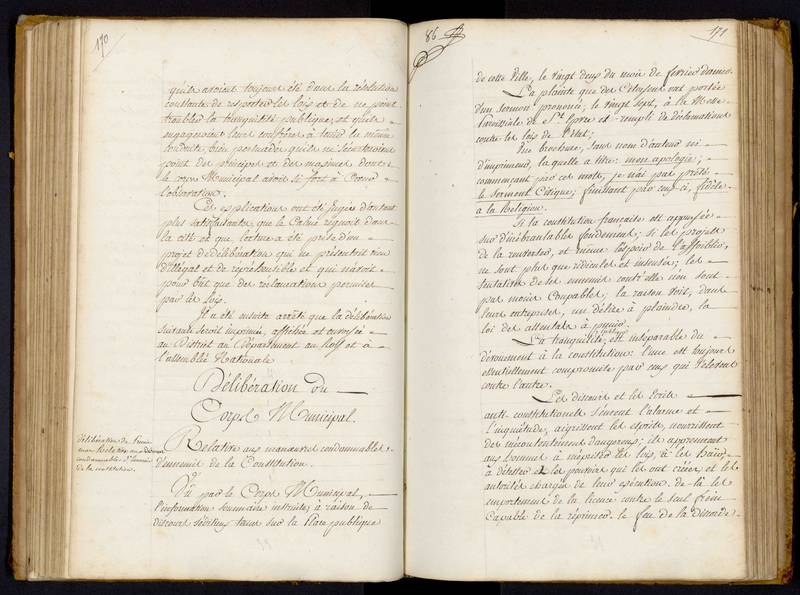 170
qu'ils avoient toujours été dans la résolution
constante de respecter les lois et de ne point
troubler la tranquilité publique, et qu'ils
engageroient leurs confrères à tenir la même
conduite, bien persuadés qu'ils ne s'écarteroient
point des principes et des maximes dont
le corps Municipal avoit si fort à Coeur
l'observation.
Ces explications ont été jugées d'autant
plus satisfaisantes que le Calme regnoit dans
la cité et que lecture a été prise d'un
projet de délibération qui ne présentoit rien
d'illégal et de repréhensible et qui n'avoit
pour but que des réclamations permises
par les lois.
Il a été ensuite arrêté que la délibération
suivante seroit imprimée, affichée et envoyée
au District au Département au Roy et à
l'assemblée Nationale
Délibération du
Corps Municipal.
délibération du Corps
mun. Relative aux manoeuvres
condamnables d'ennemis
de la constitution.
Relative aux manoeuvres condamnables
d'ennemis de la Constitution.
Vu par le Corps Municipal,
l'information sommaire instruite, à raison de
discours séditieux tenus sur la Place publique
86
171
de cette Ville, le vingt deux du mois de février dernier.
La plainte que des Citoyens ont portée
d'un sermon prononcé, le vingt sept, à la Messe
Paroissiale de St. Epvre et rempli de déclamations
contre les lois de l'état;
Une brochure, sans nom d'auteur ni
d'imprimeur, laquelle a titre: mon apologie;
commençant par ces mots, je n'ai pas prêté
le serment Civique; finissant par ceux-ci, fidèle
a la Religion.
Si la constitution française est appuyée
sur d'inébranlables fondemens; si les projets
de la renverser, et même l'espoir de l'affoiblir,
ne sont plus que ridicules et insensés; les
tentatives de ses ennemis contr'elle n'en sont
pas moins Coupables; la raison voit, dans
leurs entreprises, un délire à plaindre, la
loi des attentats à punir.
La tranquilité publique est inséparable du
dévouement à la constitution: l'une est toujours
essentiellement compromise par ceux qui s'élèvent
contre l'autre.
Les discours et les écrits
anti-constitutionels sèment l'alarme et
l'inquiétude, aigrissent les esprits, nourrissent
des mécontentemens dangereux; ils apprennent
aux hommes à mépriser les lois, à les haïr,
à détester et les pouvoirs qui les ont créées et les
autorités chargées de leur exécution. de-là les
emportemens de la licence contre le seul frein
Capable de la réprimer. le feu de la discorde